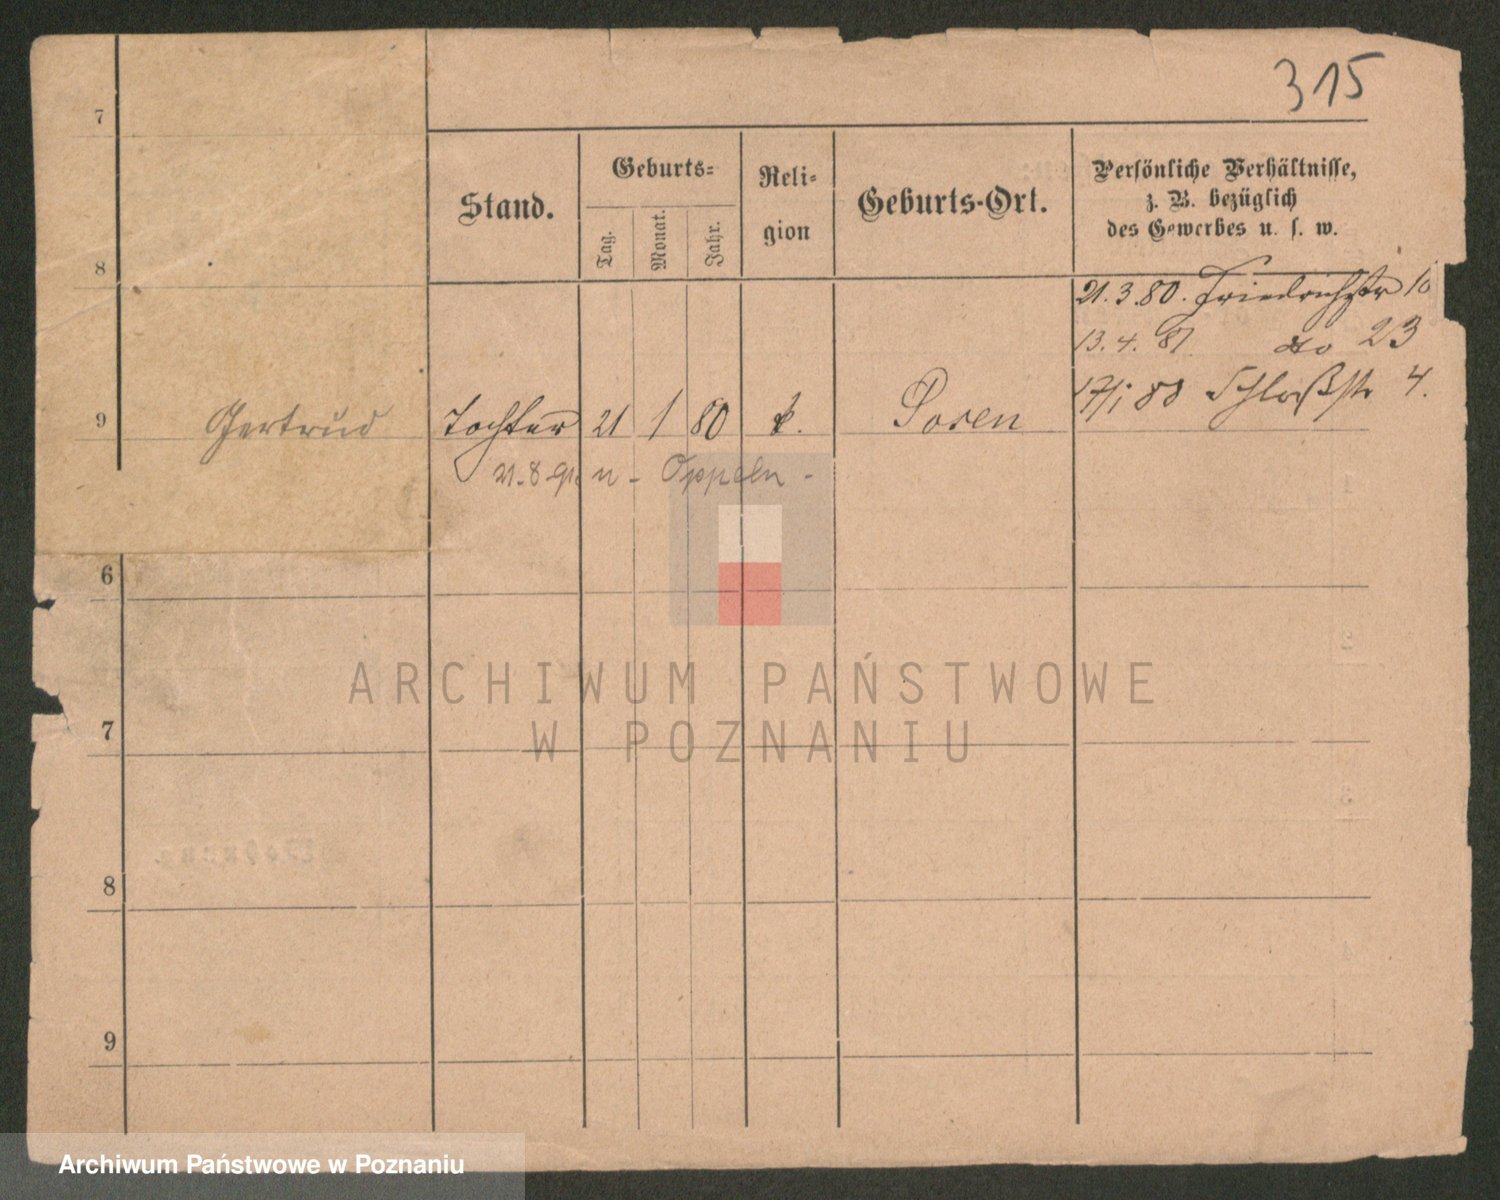 315
7
Stand.
Geburts-
Tag.
Monat.
Jahr.
Reli-
gion
Geburts-Ort.
Persönliche Verhältnisse,
z. B. bezüglich
des Gewerbes u. s. w.
8
21.3.80. Friedrichstr 10
13.4.81 do 23
17/1 88 Schloßstr 4.
9 Gertrud Tochter 21 1 80 k. Posen
21.8.91. n - Oppeln -
6
7
8
9
ARCHIWUM PAŃSTWOWE
W POZNANIU
Archiwum Państwowe w Poznaniu